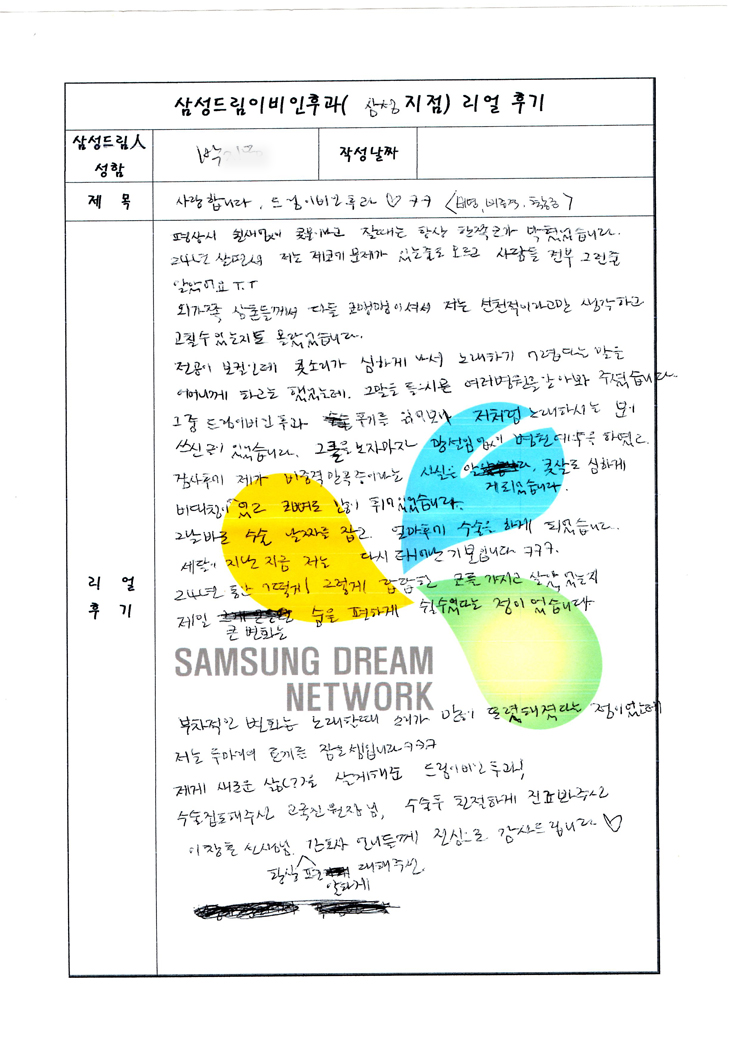 삼성드림이비인후과( 삼성 지점) 리얼 후기
삼성드림人
성함
박
작성날짜
제 목
사랑합니다, 드림이비인후과 ♡ ㅋㅋ <비염, 비중격,
평상시 쉴새없이 콧물이나고 잘때는 항상 한쪽코가 막혔었습니다.
24년 살면서 저는 제코가 문제가 있는줄도 모르고 사람들 전부 그런줄
알았어요 T.T
외가쪽 삼촌들께서 다들 코맹맹이셔서 저는 선천적이라고만 생각하고
고칠수 있는지도 몰랐었습니다.
전공이 보컬인데 콧소리가 심하게 나서 노래하기 어렵다는 말을
어머니께 하고는 했었는데, 그말을 들으시곤 여러병원을 알아봐 주셨습니다..
그중 드림이비인후과 후기를 읽어보니 저처럼 노래하시는 분이
쓰신 글이 있었습니다. 그글을 보자마자 망설임 없이 병원예약을 하였고
검사후에 제가 비중격만곡증이라는 사실을 콧살도 심하게
게 되었습니다.
비대칭이 있고 좌우로 많이 휘어있었습니다.
그날 바로 수술 날짜를 잡고 얼마후에 수술을 하게 되었습니다..
세달이 지난 지금 저는 다시 태어난 기분입니다 ㅋㅋㅋ.
24년 동안 어떻게 그렇게 답답한 코를 가지고 살았었는지
제일 숨을 편하게 쉴수있다는 점이 었습니다
큰 변화는
리 얼
후 기
SAMSUNG DREAM
NETWORK
부차적인 변화는 노래할때 소리가 많이 또렷해졌다는 점이었는데
저는 두마리의 토끼를 잡은셈입니다 ㅋㅋㅋ
제게 새로운 삶(??)을 살게해준 드림이비인후과!
수술집도해주신 고국진 원장님, 수술후 친절하게 진료봐주신
이창훈 선생님, 간호사 언니들께 진심으로 감사드립니다 ♡
항상 편 대해주신
안하게